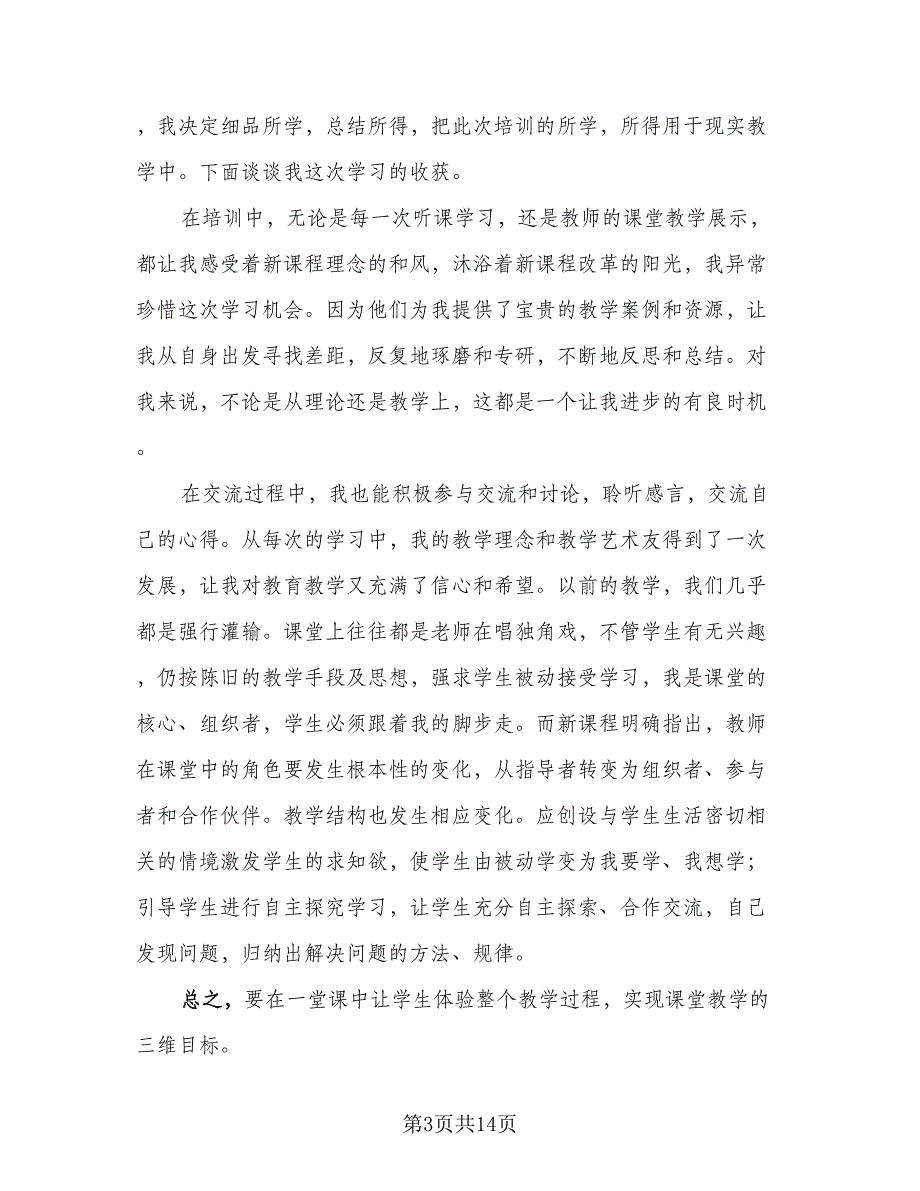 ，我决定细品所学，总结所得，把此次培训的所学，所得用于现实教
学中。下面谈谈我这次学习的收获。
在培训中，无论是每一次听课学习，还是教师的课堂教学展示，
都让我感受着新课程理念的和风，沐浴着新课程改革的阳光，我异常
珍惜这次学习机会。因为他们为我提供了宝贵的教学案例和资源，让
我从自身出发寻找差距，反复地琢磨和专研，不断地反思和总结。对
我来说，不论是从理论还是教学上，这都是一个让我进步的有良时机
。
在交流过程中，我也能积极参与交流和讨论，聆听感言，交流自
己的心得。从每次的学习中，我的教学理念和教学艺术友得到了一次
发展，让我对教育教学又充满了信心和希望。以前的教学，我们几乎
都是强行灌输。课堂上往往都是老师在唱独角戏，不管学生有无兴趣
，仍按陈旧的教学手段及思想，强求学生被动接受学习，我是课堂的
核心、组织者，学生必须跟着我的脚步走。而新课程明确指出，教师
在课堂中的角色要发生根本性的变化，从指导者转变为组织者、参与
者和合作伙伴。教学结构也发生相应变化。应创设与学生生活密切相
关的情境激发学生的求知欲，使学生由被动学变为我要学、我想学；
引导学生进行自主探究学习，让学生充分自主探索、合作交流，自己
发现问题，归纳出解决问题的方法、规律。
总之，要在一堂课中让学生体验整个教学过程，实现课堂教学的
三维目标。
第3页共14页